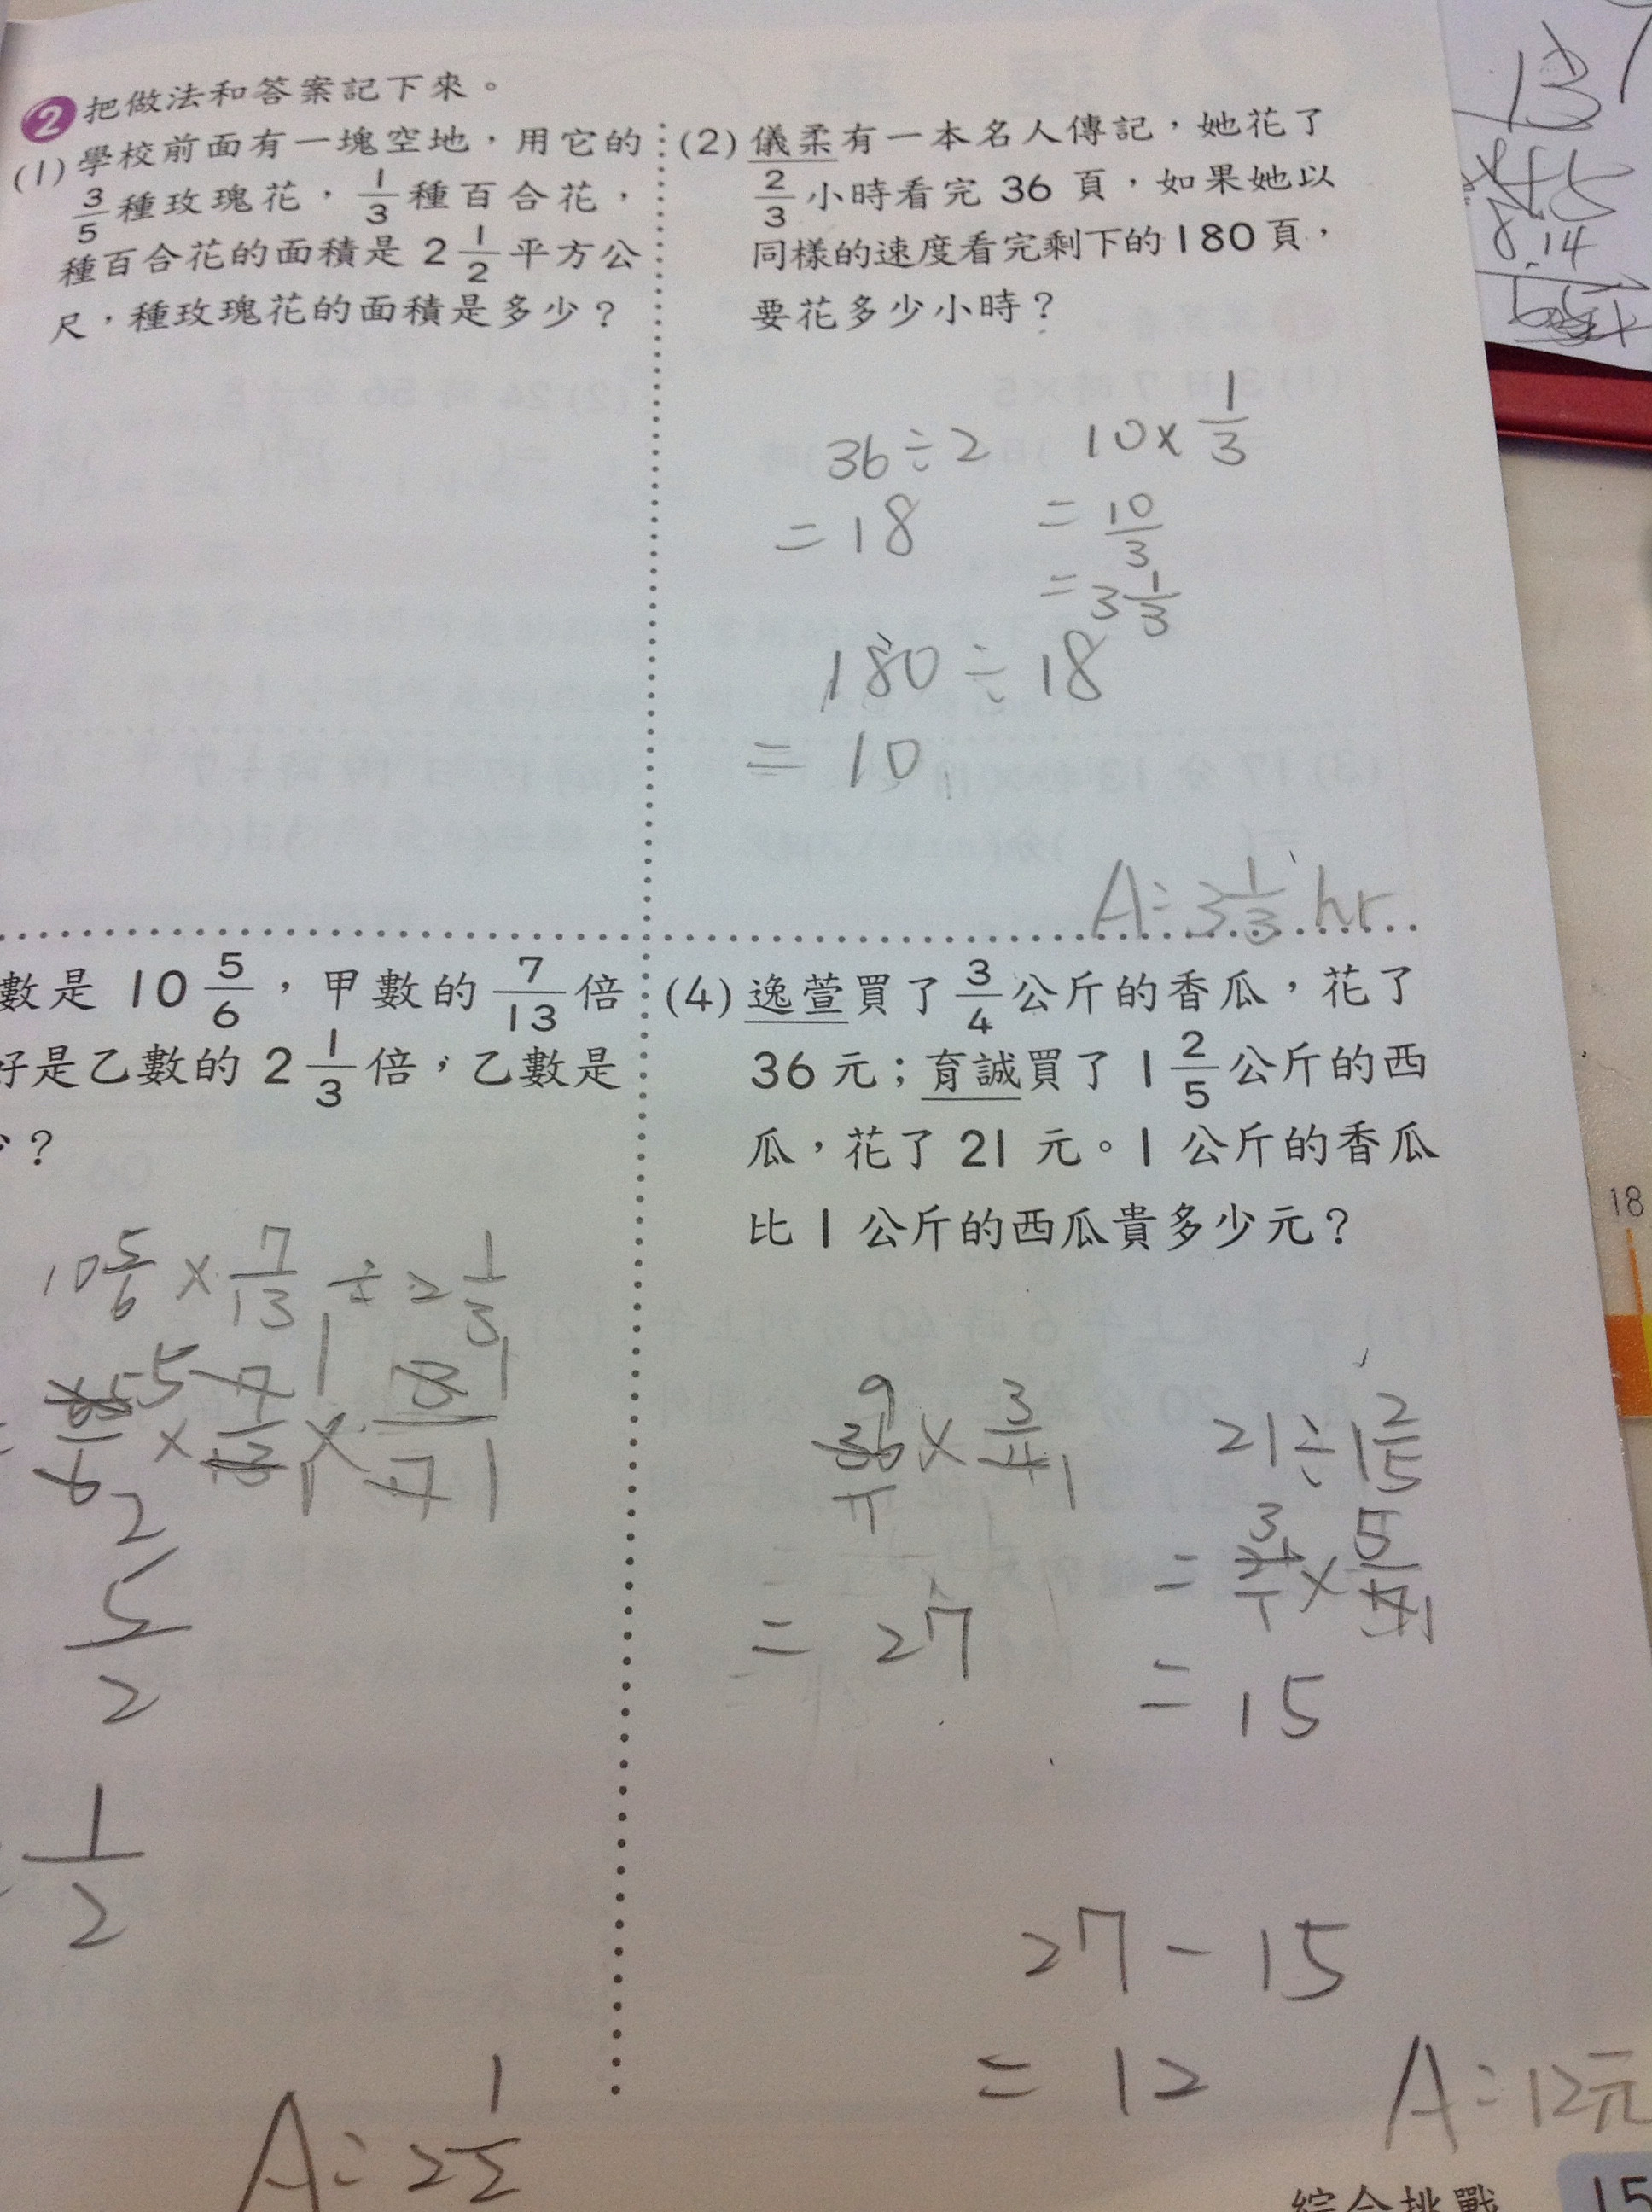 2 把做法和答案記下來。
(1) 學校前面有一塊空地，用它的
3/5 種玫瑰花，1/3 種百合花，
種百合花的面積是 2 1/2 平方公
尺，種玫瑰花的面積是多少？
(2) 儀柔有一本名人傳記，她花了
2/3 小時看完 36 頁，如果她以
同樣的速度看完剩下的 180 頁，
要花多少小時？
36÷2
=18
180÷18
=10
10×1/3
=10/3
=3 1/3
A:3 1/3 hr
數是 10 5/6，甲數的 7/13 倍
好是乙數的 2 1/3 倍，乙數是
？
10 5/6 × 7/13 ÷ 2 1/3
= 65/6 × 7/13 × 3/7
5 1 1
2 1 1
5/2
1/2
A:2 1/2
(4) 逸萱買了 3/4 公斤的香瓜，花了
36 元；育誠買了 1 2/5 公斤的西
瓜，花了 21 元。1 公斤的香瓜
比 1 公斤的西瓜貴多少元？
9
36/1 × 3/4 1
=27
21÷1 2/5
3
=21/1 × 5/7 1
=15
27-15
=12
A:12元
綜合挑戰 15
18
8.14